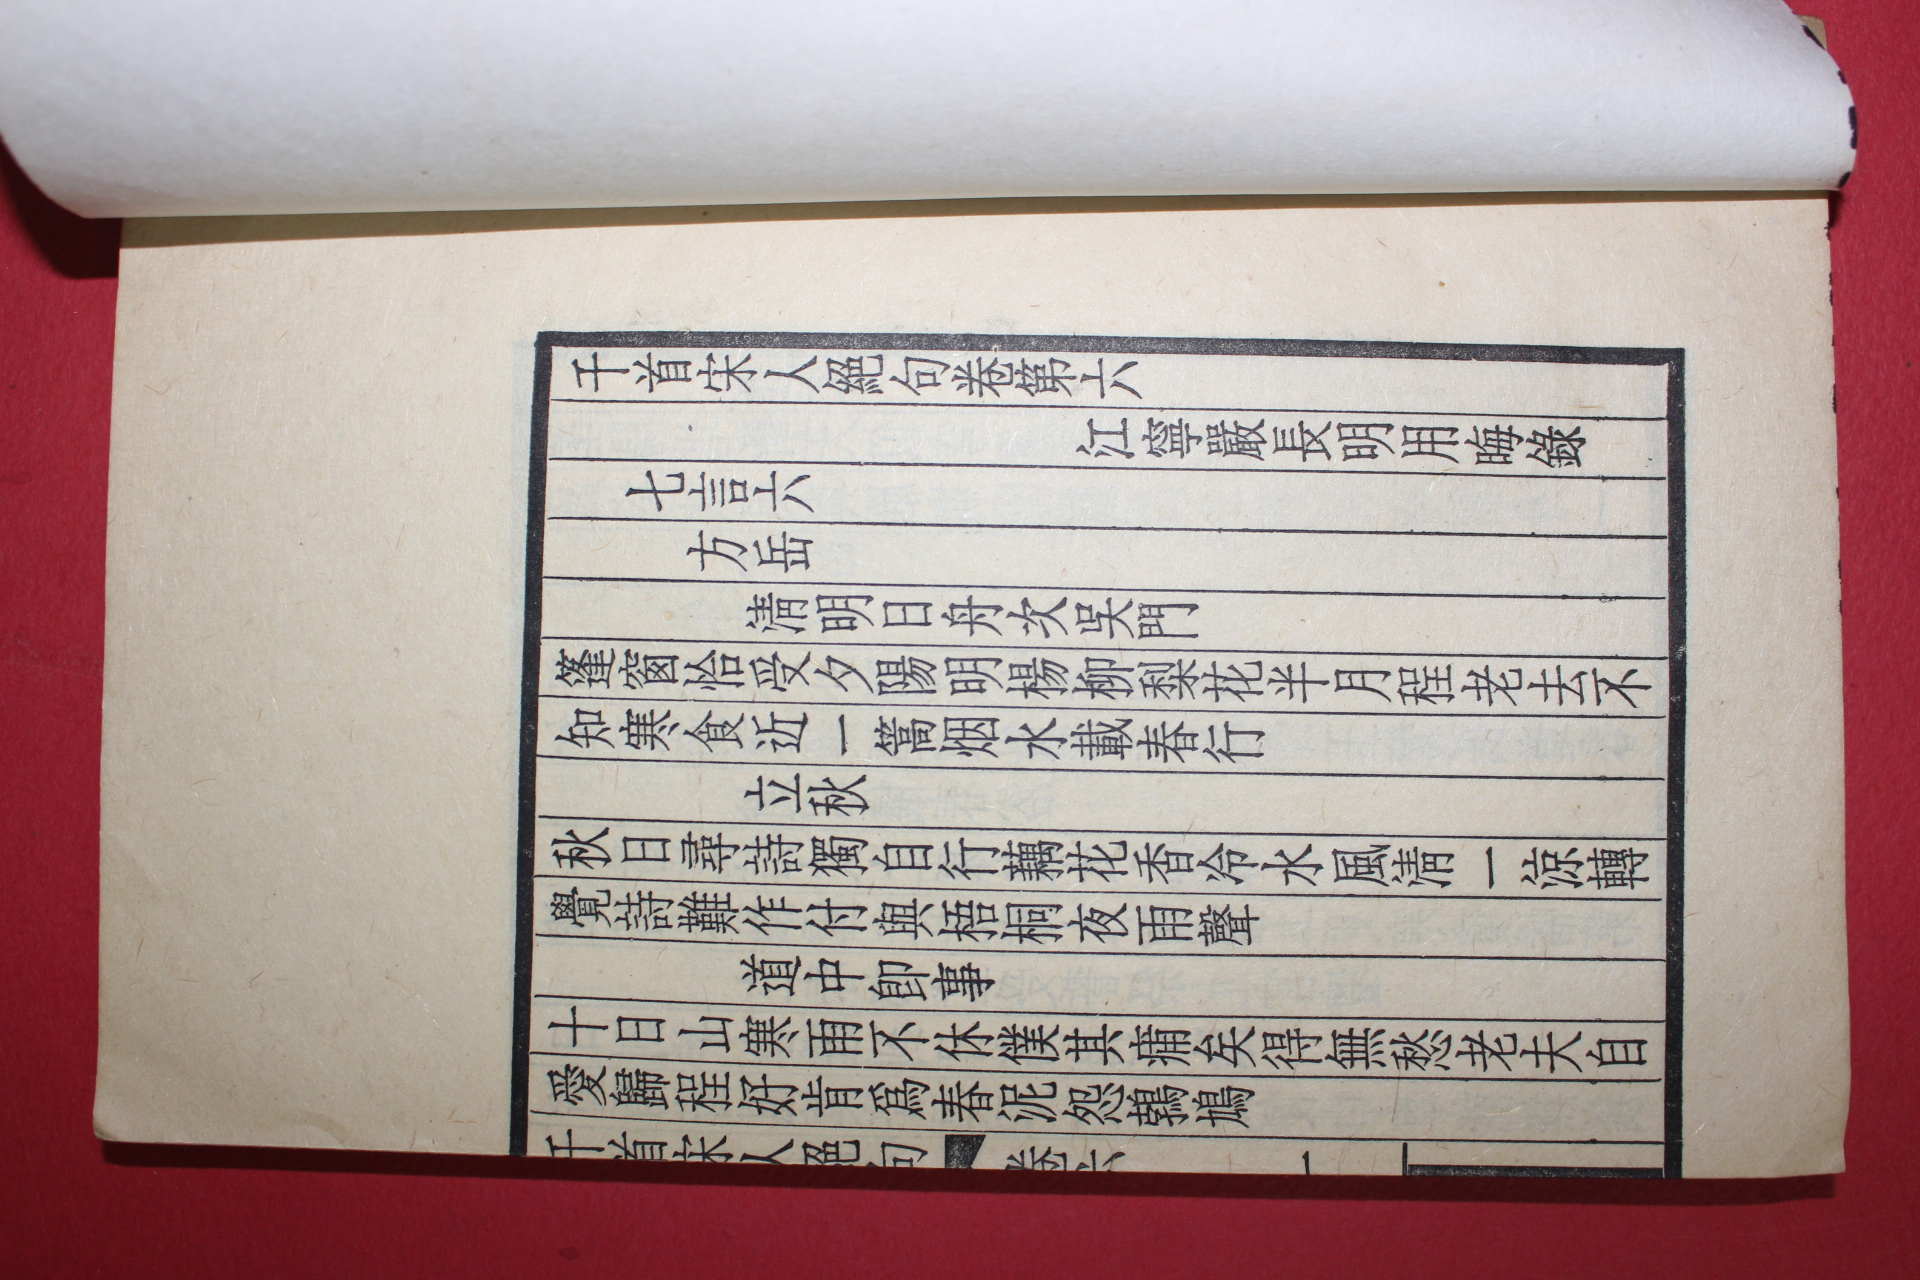 千首宋人絕句卷第六
江寧嚴長明用晦錄
七言六
方岳
淸明日舟次吳門
篷窗恰受夕陽明楊柳梨花半月程老去不
知寒食近一篙烟水載春行
立秋
秋日尋詩獨自行藕花香冷水風淸一涼轉
覺詩難作付與梧桐夜雨聲
道中卽事
十日山寒雨不休僕其痡矣得無愁老夫自
愛歸程好肯爲春泥怨鵓鳩
千首宋人絕句 卷六 一